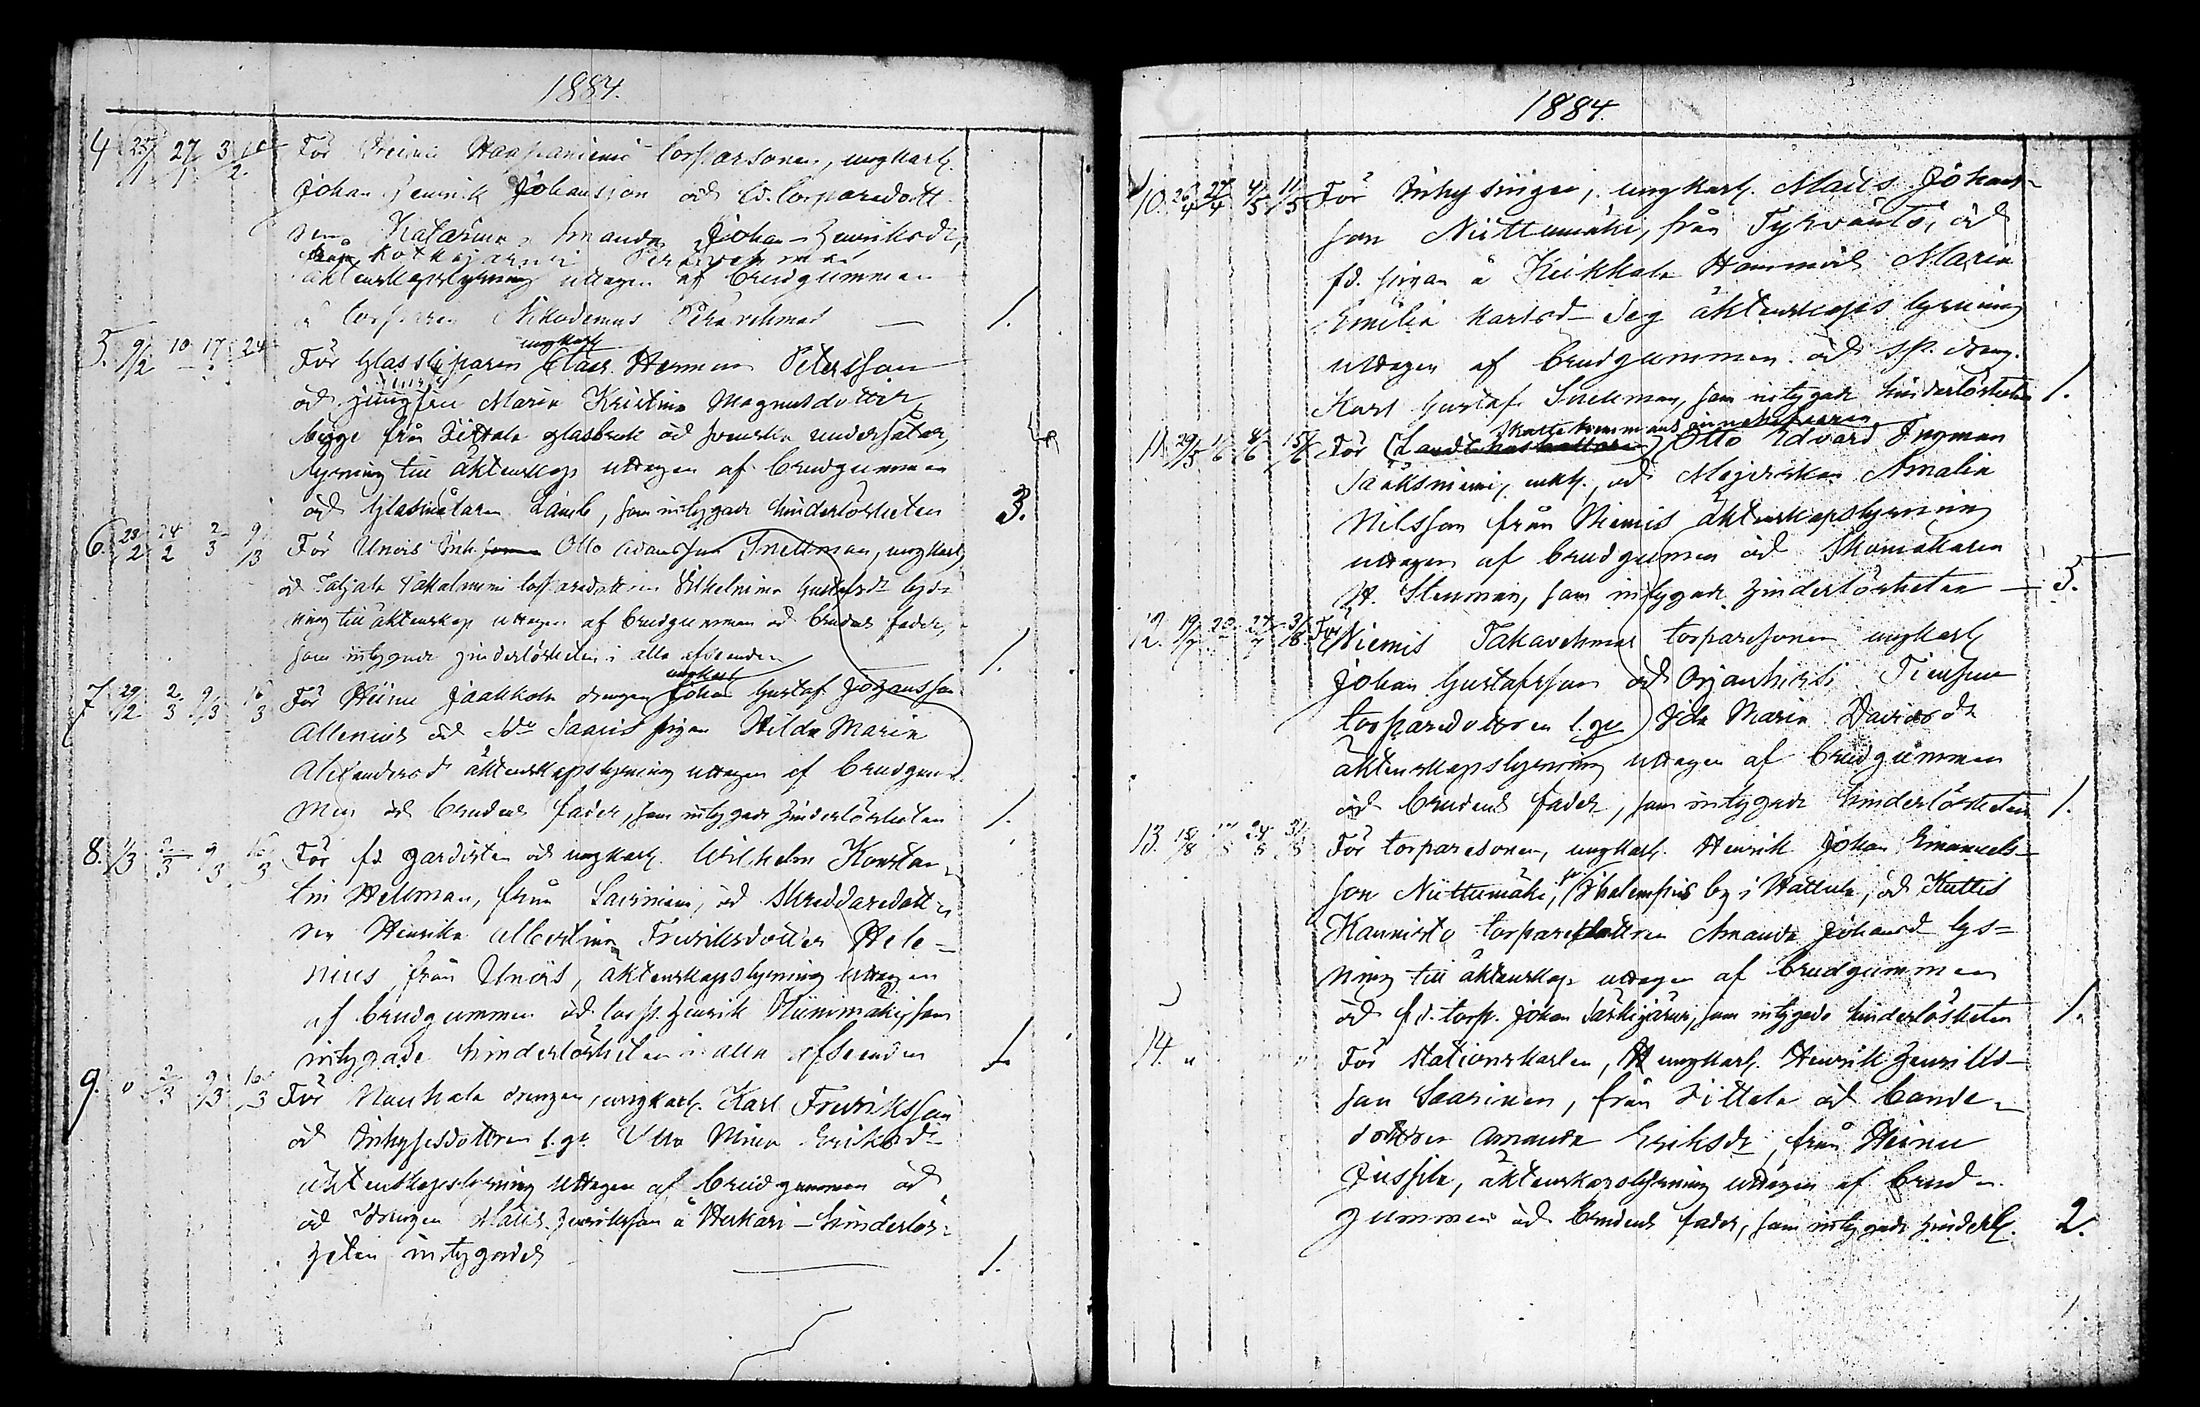 1884.
4 25/1 27/1 3 10/2 För Heinu Haapaniemi torparsonen, ungkarl.
Johan Henrik Johansson och t.d. torparedott
ren Katarina Amanda Johan Henriksdr,
från Kotkajärvi Perävehmas
äktenskapslysning uttagen af brudgummen
o torparen Nikodemus Perävehmas — 1.
5. 9/2 10 17 24 För Glassliparen ungkarl Claes Herman Petersson
och jungfru Maria Kristina Magnusdotter
begge från Iittala glasbruk och svenska undersåtar,
lysning till äktenskap uttagen af brudgummen
och Glasmästaren Lamb, som intygade hinderlösheten 3.
6. 23/2 24/2 2/3 9/3 För Unois Inh. Otto Adamsson Snellman, ungkarl,
och Taljala torparedottren Vilhelmina Gustafsdr lys=
ning till äktenskap uttagen af brudgummen och brudens fader,
som intygade hinderlösheten i alla afseenden 1.
7. 29/2 2/3 9/3 16/3 För Heinu Jaakkola drengen ungkarl Johan Gustaf Johansson
Allenius och Saaris pigan Hilda Maria
Alexandersd äktenskapslysning uttagen af brudgum=
men och brudens fader, som intygade hinderlösheten 1.
8. 1/3 2/3 9/3 16/3 För f.d. gardisten och ungkarl. Wilhelm Konstan=
tin Hellman, från Sairiala, och Skreddaredott=
ren Henrika Albertina Fredriksdotter Hele=
nius från Unois, äktenskapslysning uttagen
af brudgummen och torp. Henrik Niinimäki, som
intygade hinderlösheten i alla afseenden 1.
9. " 2/3 9/3 16/3 För Nauhala drengen, ungkarl. Karl Fredriksson
och Inhysesdottren l.qv. Ulla Mina Eriksdr
äktenskapslysning uttagen af brudgummen och
och drengen Matts Henriksson å Herkari – hinderlös=
heten intygades 1.
1884.
10. 26/4 27/4 4/5 11/5 För Inhysingen, ungkarl. Matts Johans-
son Niittumäki, från Tyrväntö, och
f.d. pigan å Keikkala Hammois Maria
Emilia Karlsd Seg äktenskaps lysning
uttagen af brudgummen och sp. dreng.
Karl Gustaf Snellman, som intygade hinderlösheten 1.
11. 29/5 1/6 8/6 15/6 För (Landtbrukaren) skattehemmans innehafvaren Otto Edvard Ingman
Sääksmäki, enkl., och Mejerskan Amalia
Nilsson från Niemis äktenskapslysning
uttagen af brudgummen och Skomakaren
H. Stenman, som intygade hinderlösheten — 5.
12. 19/7 20 27/7 3/8 För Niemis Takavehmas torparesonen ungkarl
Johan Gustafsson och Orjanhirsi
torparedottren l.qv. Ida Maria Davidsdr
äktenskapslysning uttagen af brudgummen
och brudens fader, som intygade hinderlösheten 1.
13. 15/8 17/8 24/8 31/8 För torparesonen, ungkarl. Henrik Johan Emanuels-
son Niittumäki, fr. Ihalempis by i Hattula, och Kuttis
Kannisto torparedottren Amanda Johansd lys=
ning till äktenskap uttagen af brudgummen
och f.d. torp. Johan Särkijärvi, som intygade hinderlösheten 1.
14. " " För Stationskarlen, ungkarl. Henrik Henriks-
son Saarinen, från Iittala och bonde=
dottren Amanda Eriksdr från Heinu
Jussila, äktenskapslysning uttagen af brud=
gummen och brudens fader, som intygade hinderl. 2.